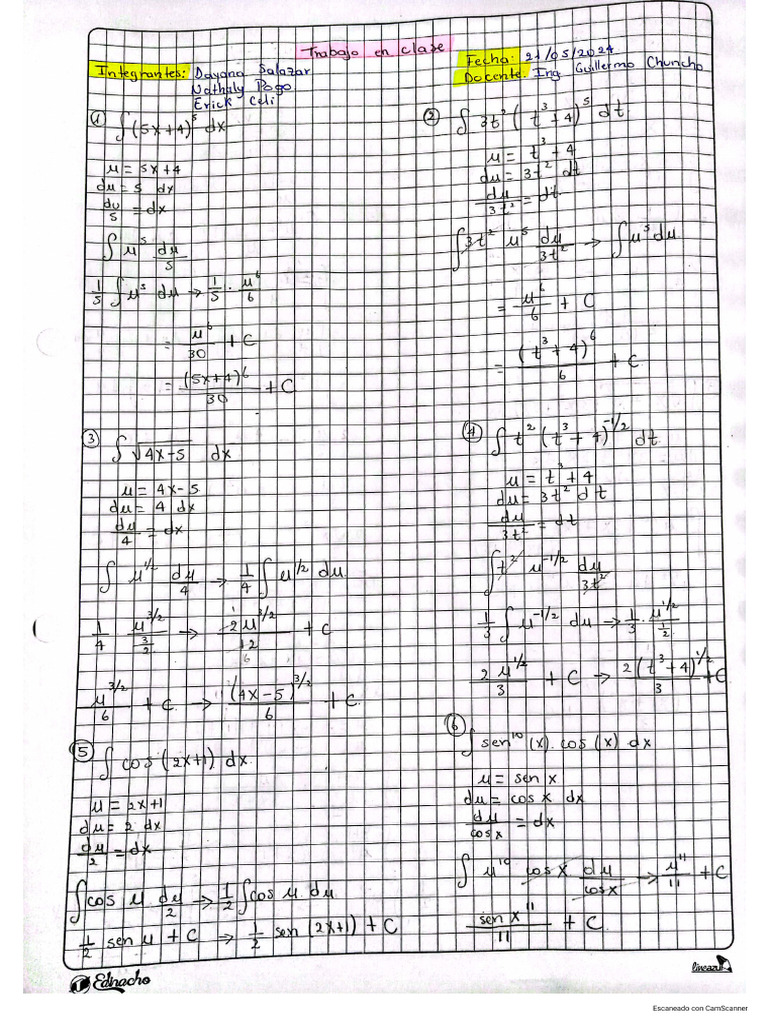 Trabajo en clase
Integrantes: Dayana Salazar
Nathaly Pogo
Erick Celi
Fecha: 21/05/2024
Docente: Ing Guillermo Chuncho
① ∫(5x+4)⁵ dx
μ = 5x+4
dμ = 5 dx
dμ/5 = dx
∫ μ⁵ dμ/5
1/5 ∫ μ⁵ dμ → 1/5 · μ⁶/6
= μ⁶/30 + C
= (5x+4)⁶/30 + C
② ∫ 3t² (t³+4)⁵ dt
μ = t³+4
dμ = 3t² dt
dμ/3t² = dt
∫ 3t² μ⁵ dμ/3t² → ∫ μ⁵ dμ
= μ⁶/6 + C
= (t³+4)⁶/6 + C
③ ∫ √(4x-5) dx
μ = 4x-5
dμ = 4 dx
dμ/4 = dx
∫ μ^1/2 dμ/4 → 1/4 ∫ μ^1/2 dμ
1/4 μ^3/2 / 3/2 → 2μ^3/2 / 12 + C
1
6
μ^3/2 / 6 + C → (4x-5)^3/2 / 6 + C
④ ∫ t² (t³+4)^-1/2 dt
μ = t³+4
dμ = 3t² dt
dμ/3t² = dt
∫ t² μ^-1/2 dμ/3t²
1/3 ∫ μ^-1/2 dμ → 1/3 · μ^1/2 / 1/2
2μ^1/2 / 3 + C → 2(t³+4)^1/2 / 3 + C
⑤ ∫ cos (2x+1) dx
μ = 2x+1
dμ = 2 dx
dμ/2 = dx
∫ cos μ dμ/2 → 1/2 ∫ cos μ dμ
1/2 sen μ + C → 1/2 sen (2x+1) + C
⑥ ∫ sen¹⁰ (x) . cos (x) dx
μ = sen x
dμ = cos x dx
dμ/cosx = dx
∫ μ¹⁰ cos x dμ/cosx → μ¹¹/11 + C
sen x¹¹/11 + C
Ednacho
lineazul
Escaneado con CamScanner